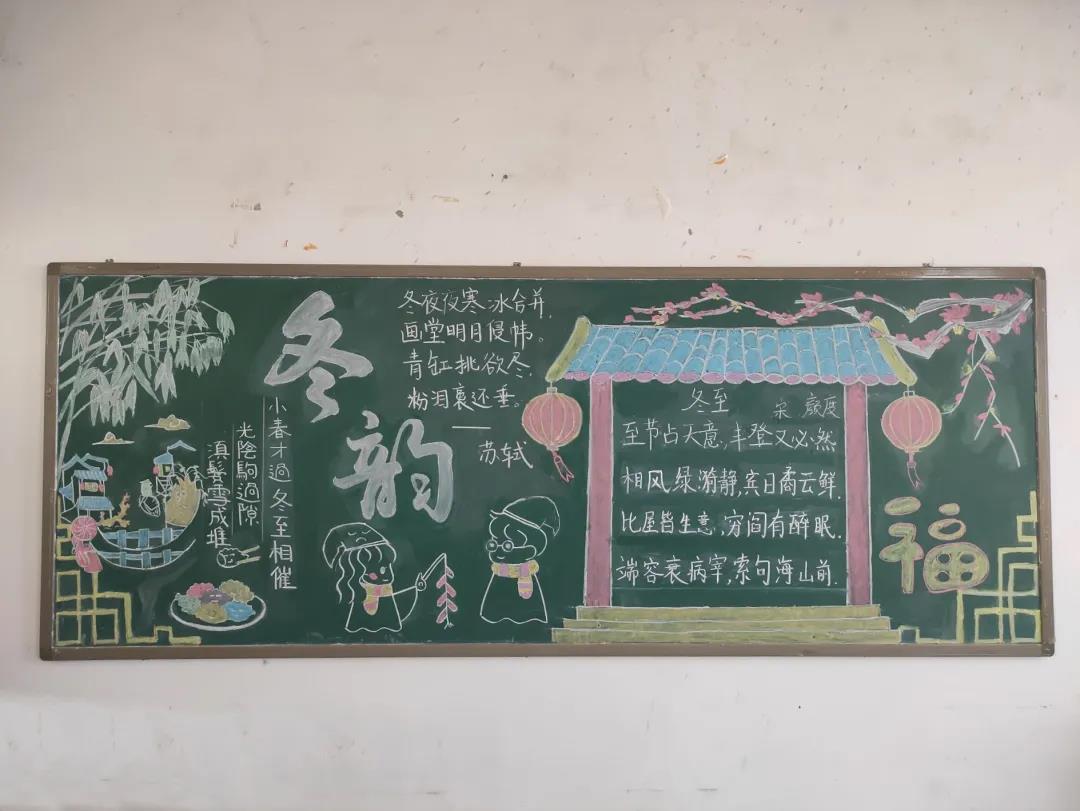 冬韵
小春才過冬至相催
光陰駒過隙
滇鬓雪成堆
冬夜夜寒冰合井,
画堂明月侵帏。
青缸挑欲尽,
粉泪裹还垂。
——苏轼
冬至
宋
至节占天意,丰登又必然
相风绿漪静,宾日矞云鲜.
比屋皆生意,穷阎有醉眠.
端容衰病宰,索句海山前.
福